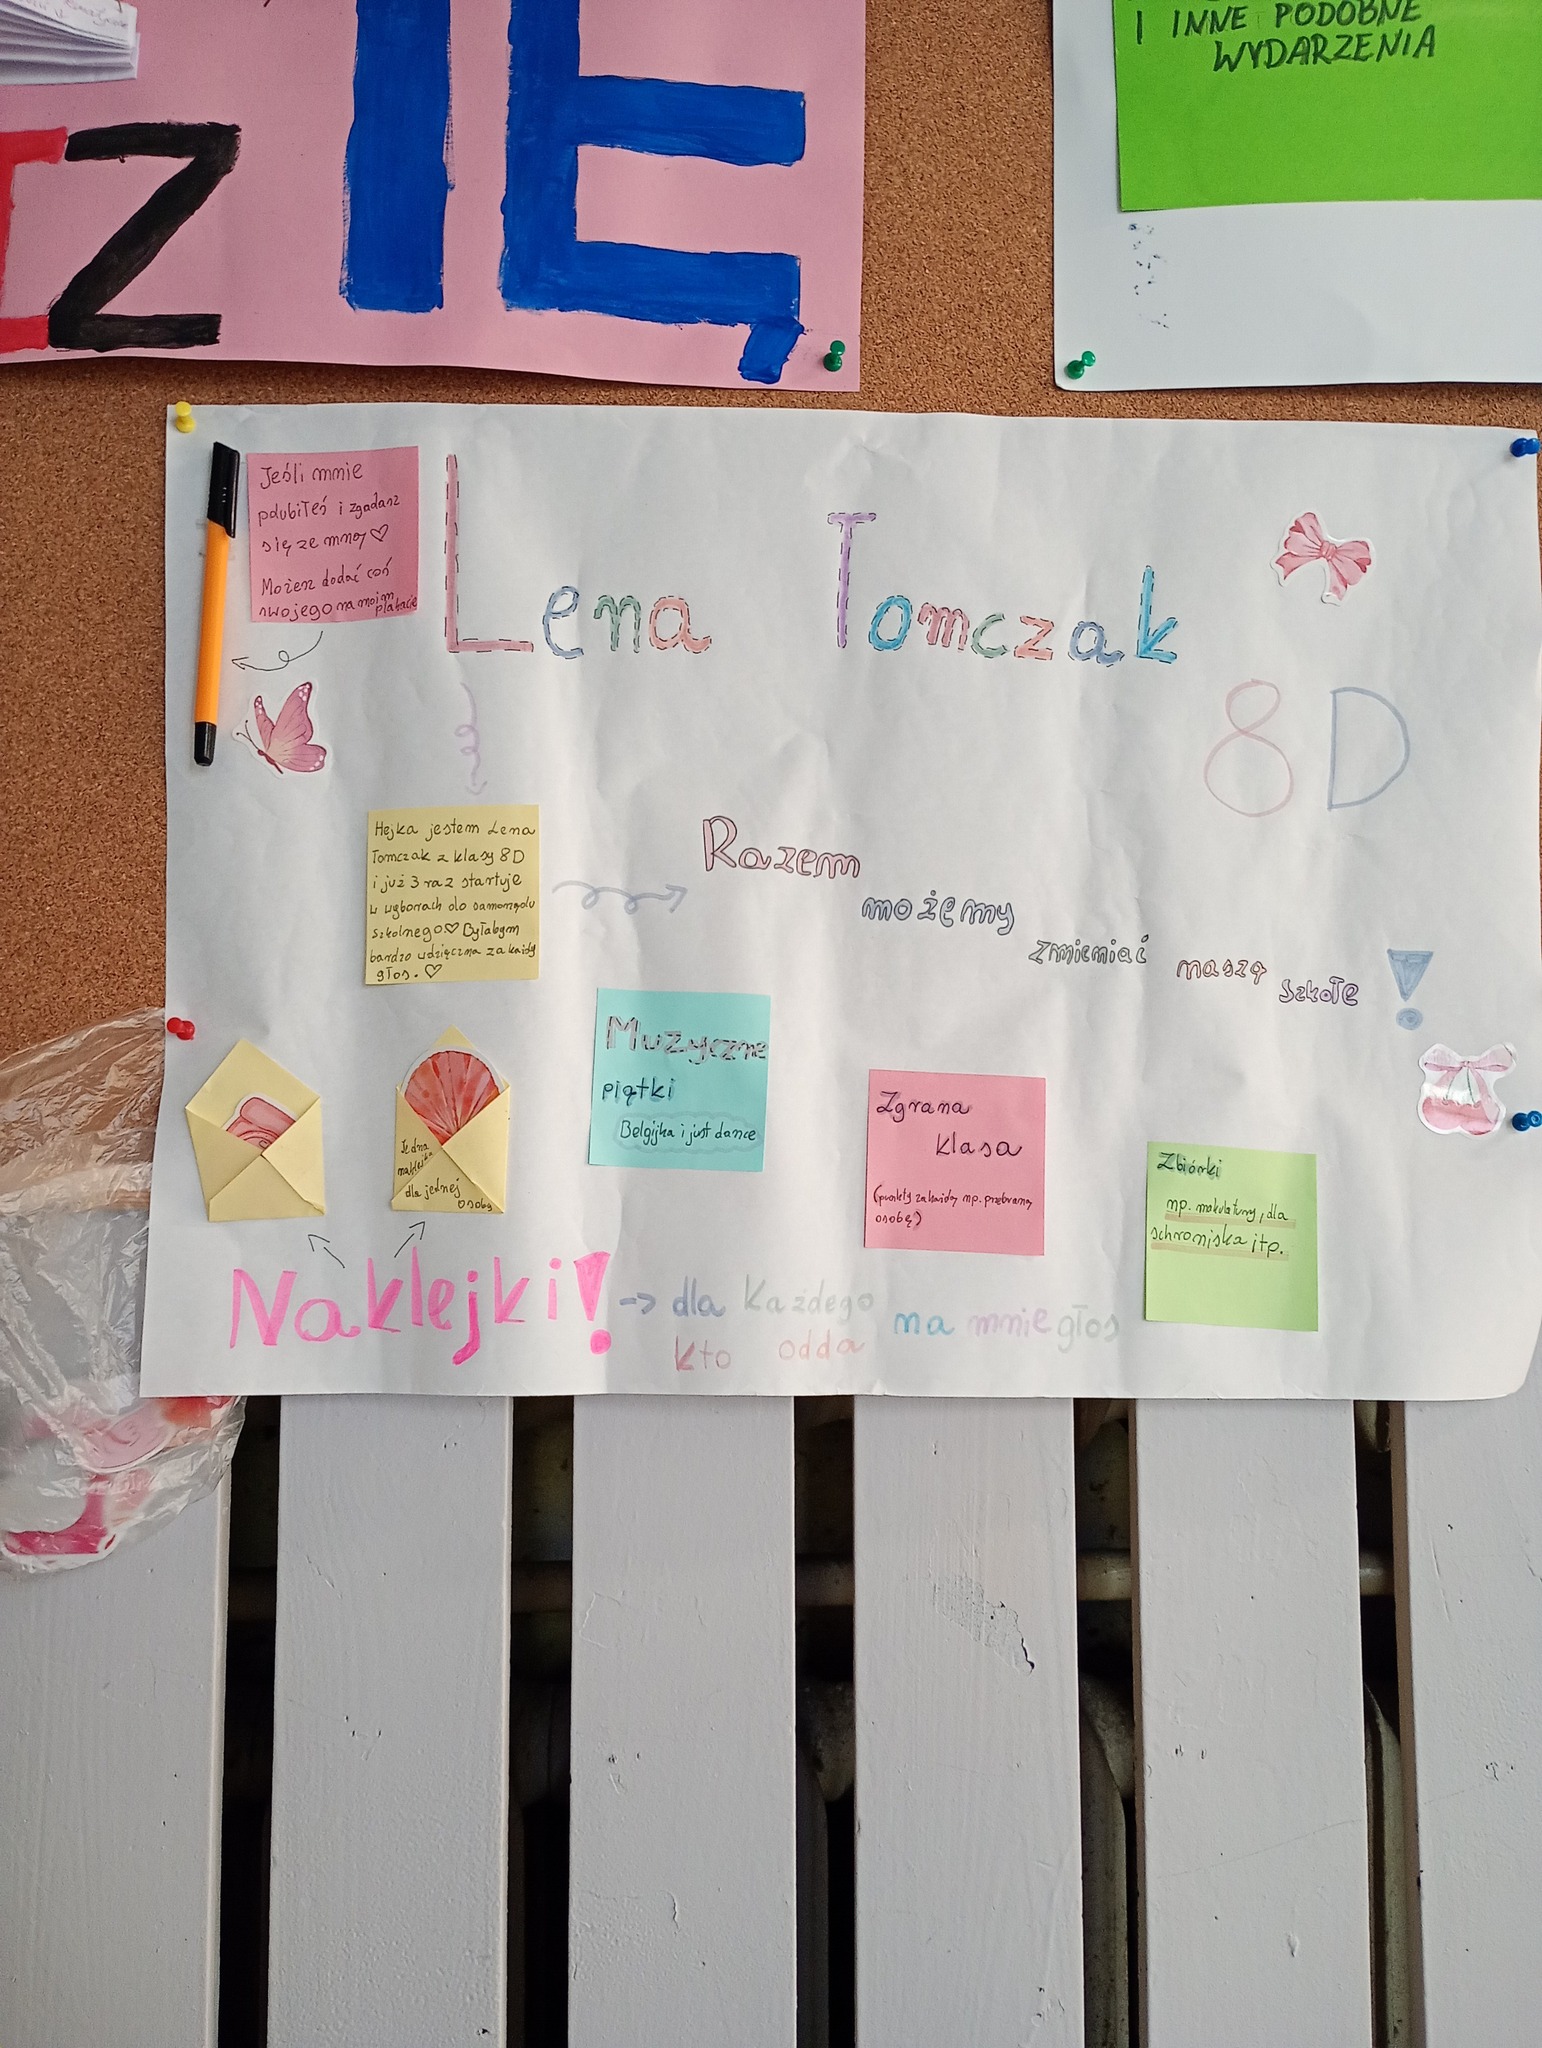 IZ
IĘ
I INNE PODOBNE
WYDARZENIA
Jeśli mnie
polubiłeś i zgadasz
się ze mną ♡
Możesz dodać coś
swojego na moim plakacie
Lena Tomczak
8D
Hejka jestem Lena
Tomczak z klasy 8D
i już 3 raz startuje
w wyborach do samorządu
szkolnego ♡ Byłabym
bardzo wdzięczna za każdy
głos. ♡
Razem
możemy
zmieniać
naszą
szkołe !
Muzyczne
piątki
Belgijka i just dance
Zgrana
klasa
(punkty za każdą np. przebraną
osobę)
Zbiórki
np. makulatury, dla
schroniska itp.
Jedna
naklejka
dla jednej
osoby
Naklejki! -> dla każdego
kto odda na mnie głos